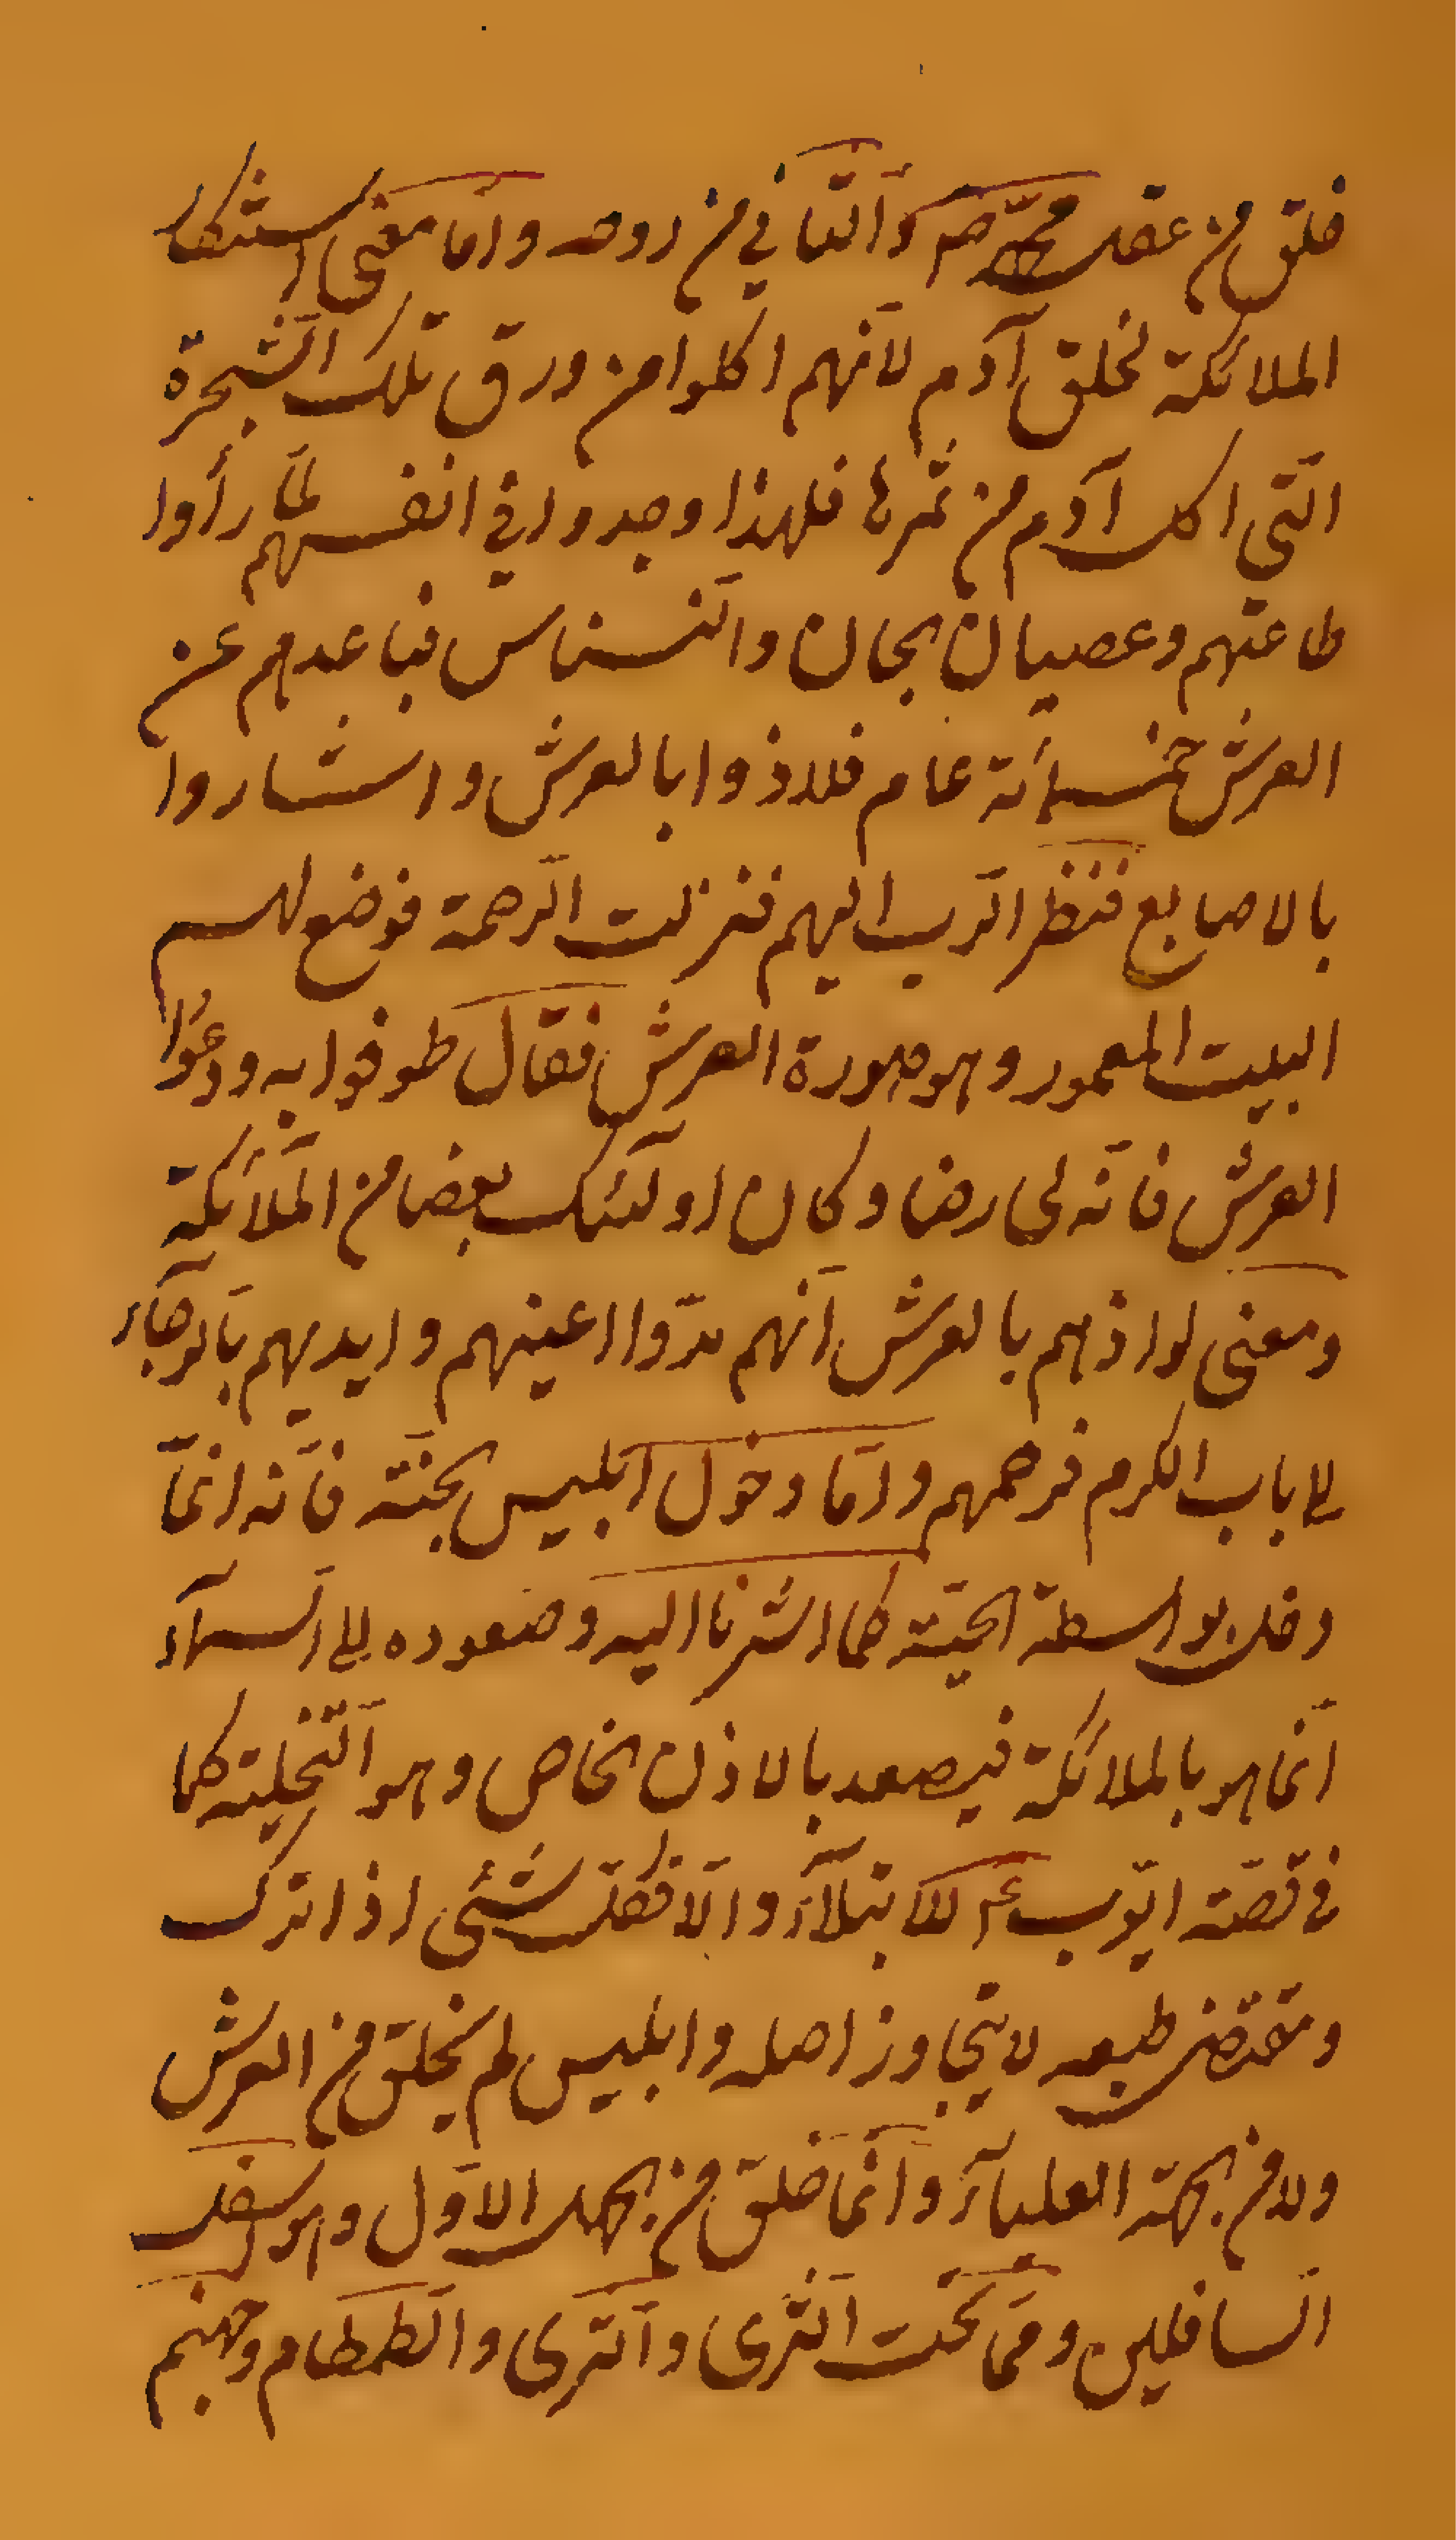 خلق من عقل محمد ص و الثاني من روحه و امّا معنى استنكار
الملائكة لخلق آدم لانّهم اكلوا من ورق تلك الشّجرة
الّتي اكل آدم من ثمرها فلهذا وجدوا في انفسهم لمّا رأوا
طاعتهم و عصيان الجان و النّسناس فباعدهم عن
العرش خمسمائة عام فلاذوا بالعرش و اشاروا
بالاصابع فنظر الرّب اليهم فنزلت الرّحمة فوضع لهم
البيت المعمور و هو صورة العرش فقال طوفوا به و دعُوا
العرش فانّه لي رضا و كان اولئك بعضا من الملائكة
و معنى لواذهم بالعرش انّهم مدّوا اعينهم و ايديهم بالرّجاء
الى باب الكرم فرحمهم و امّا دخول ابليس الجنّة فانّه انّما
دخل بواسطة الحيّة كما اشرنا اليه و صعوده الى السّماء
انّما هو بالملائكة فيصعد بالاذن الخاص و هو التّخلية كما
في قصّة ايّوب ع للابتلاء و الّا فكلّ شئ اذا ترك
و مقتضى طبعه لا يتجاوز اصله و ابليس لم يخلق من العرش
و لا من الجهة العلياء و انّما خلق من الجهل الاوّل و هو اسفل
السّافلين و ممّا تحت الثّرى و الثّرى و الطّمطام و جهنم